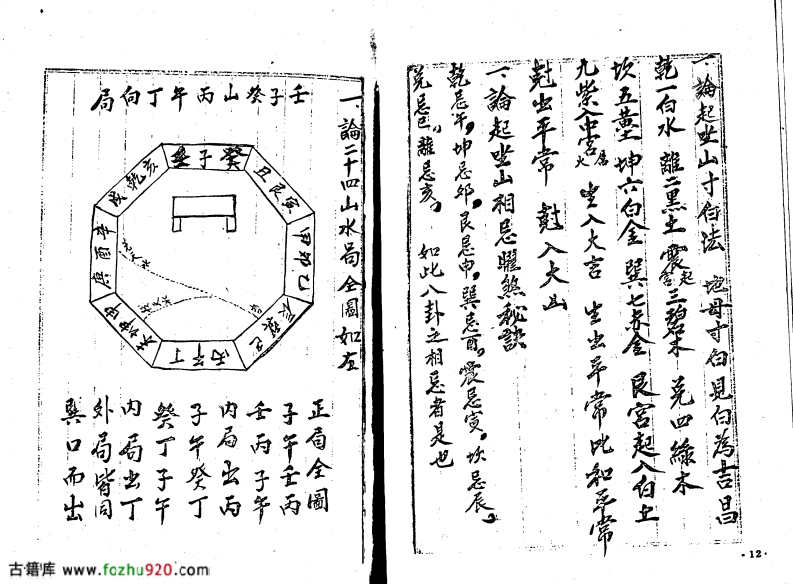 一、論起坐山寸白法 地母寸白見白為吉昌
乾一白水 離二黑土 震宮起三碧木 兌四綠木
坎五黃土 坤六白金 巽七赤金 艮宮起八白土
九紫入中宮屬火 生入大吉 生出平常 比和平常
尅出平常 尅入大凶
一、論起坐山相忌曜煞秘訣
乾忌午。坤忌卯。艮忌申。巽忌酉。震忌寅。坎忌辰。
兌忌巳。離忌亥。 如此八卦之相忌者是也
- 12 -
一、論二十四山水局全圖如左
壬子癸山丙午丁向局
壬子癸
丑艮寅
甲卯乙
辰巽巳
丙午丁
未坤申
庚酉辛
戌乾亥
正局全圖
子午壬丙
壬丙子午
內局出丙
子午癸丁
癸丁子午
內局出丁
外局皆同
巽口而出
古籍库 www.fozhu920.com